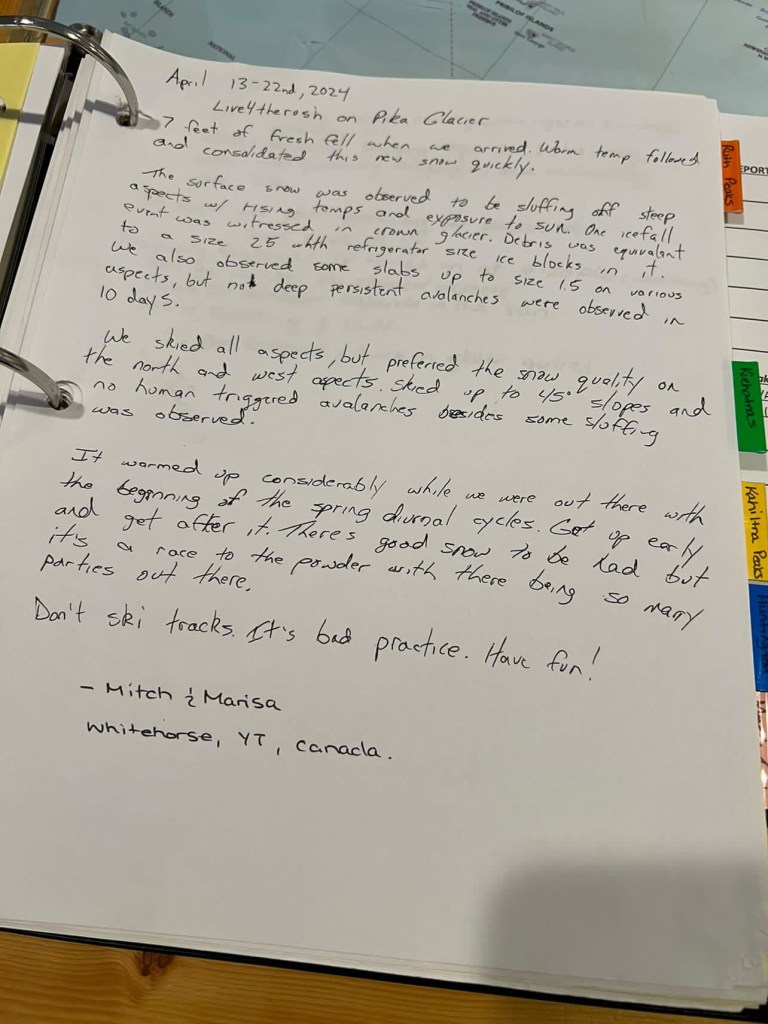 PRIBILOF ISLANDS
NATIONAL
April 13-22nd, 2024
Live4therush on Pika Glacier
7 feet of fresh fell when we arrived. Warm temp followed
and consolidated this new snow quickly.
The surface snow was observed to be sluffing off steep
aspects w/ rising temps and exposure to sun. One icefall
event was witnessed in crown glacier. Debris was equivalent
to a size 2.5 with refrigerator size ice blocks in it.
We also observed some slabs up to size 1.5 on various
aspects, but not deep persistent avalanches were observed in
10 days.
We skied all aspects, but preferred the snow quality on
the north and west aspects. Skied up to 45° slopes and
no human triggered avalanches besides some sluffing
was observed.
It warmed up considerably while we were out there with
the beginning of the spring diurnal cycles. Get up early
and get after it. There's good snow to be had but
it's a race to the powder with there being so many
parties out there.
Don't ski tracks. It's bad practice. Have fun!
- Mitch & Marisa
Whitehorse, YT, Canada.
Ruth Peaks
Kichatnas
Kahiltna Peaks